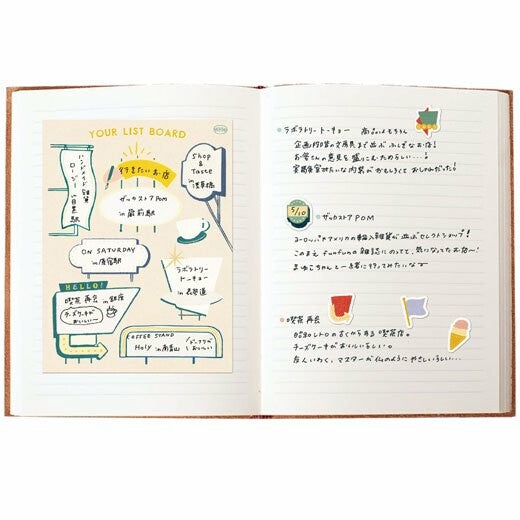 YOUR LIST BOARD
行きたいお店
Shop
&
Taste
in 浅草橋
ハンドメイド雑貨
ロージー
in 目黒駅
ザッカストア POM
in 蔵前駅
ON SATURDAY
in 原宿駅
ラボラトリー
トーキョー
in 表参道
HELLO!
喫茶 再会 in 銀座
チーズケーキが
おいしい〜
COFFEE STAND
Holy in 南青山
ドーナツが
おいしい
ラボラトリートーキョー
企画
の文房具まで並ぶふしぎなお店!
実験室みたいな内装がおもしろくておしゃれだった!
5/10
ザッカストア POM
ヨーロッパやアメリカの輸入雑貨が並ぶセレクトショップ!
このまえ funfunの雑誌にのってて、気になってたお店〜!
まゆこちゃんと一緒に行ってみたいな
喫茶 再会
昭和レトロの古くからある喫茶店。
チーズケーキがおいしいらしい。
友人いわく、マスターが仏のようにやさしいらしい…